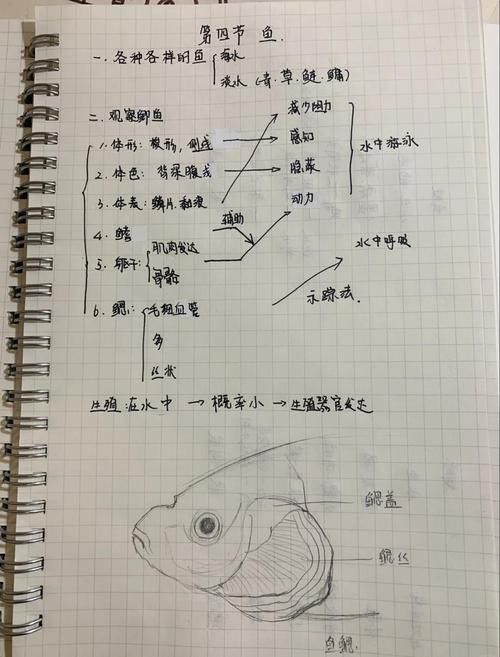 第四节 鱼.
一.各种各样的鱼 海水
淡水(青.草.鲢.鳙)
二.观察鲫鱼
减少阻力
1.体形:梭形,侧线 感知
2.体色:背深腹浅 隐蔽 水中游泳
3.体表:鳞片.黏液 动力
4.鳍 辅助
5.躯干: 肌肉发达 水中呼吸
骨骼
示踪法.
6.鳃: 毛细血管
多
丝状
生殖:在水中 → 概率小 → 生殖器官发达
鳃盖
鳃丝
鱼鳃.